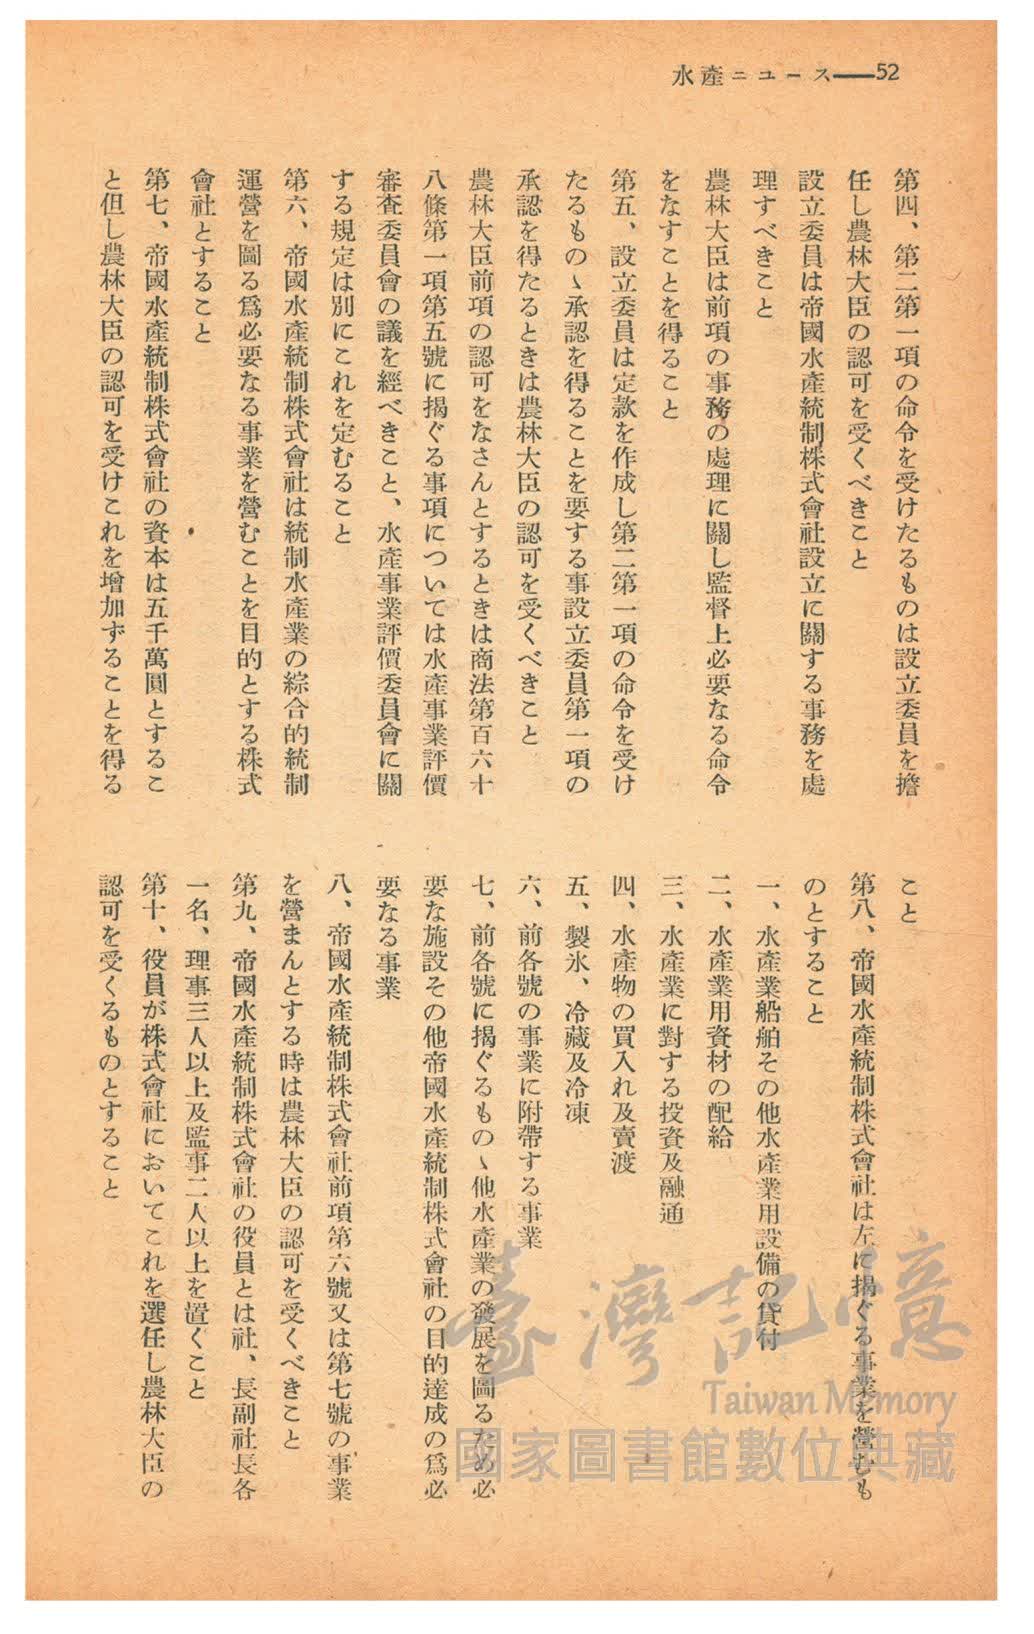 水產ニュース――52
第四、第二第一項の命令を受けたるものは設立委員を擔
任し農林大臣の認可を受くべきこと
設立委員は帝國水產統制株式會社設立に關する事務を處
理すべきこと
農林大臣は前項の事務の處理に關し監督上必要なる命令
をなすことを得ること
第五、設立委員は定款を作成し第二第一項の命令を受け
たるものゝ承認を得ることを要する事設立委員第一項の
承認を得たるときは農林大臣の認可を受くべきこと
農林大臣前項の認可をなさんとするときは商法第百六十
八條第一項第五號に揭ぐる事項については水產事業評價
審査委員會の議を經べきこと、水產事業評價委員會に關
する規定は別にこれを定むること
第六、帝國水產統制株式會社は統制水產業の綜合的統制
運營を圖る爲必要なる事業を營むことを目的とする株式
會社とすること
第七、帝國水產統制株式會社の資本は五千萬圓とするこ
と但し農林大臣の認可を受けこれを增加ずることを得る
こと
第八、帝國水產統制株式會社は左に揭ぐる事業を營むも
のとすること
一、水產業船舶その他水產業用設備の貸付
二、水產業用資材の配給
三、水產業に對する投資及融通
四、水產物の買入れ及賣渡
五、製氷、冷藏及冷凍
六、前各號の事業に附帶する事業
七、前各號に揭ぐるものゝ他水產業の發展を圖るため必
要な施設その他帝國水產統制株式會社の目的達成の爲必
要なる事業
八、帝國水產統制株式會社前項第六號又は第七號の事業
を營まんとする時は農林大臣の認可を受くべきこと
第九、帝國水產統制株式會社の役員とは社、長副社長各
一名、理事三人以上及監事二人以上を置くこと
第十、役員が株式會社においてこれを選任し農林大臣の
認可を受くるものとすること
臺灣記憶
Taiwan Memory
國家圖書館數位典藏